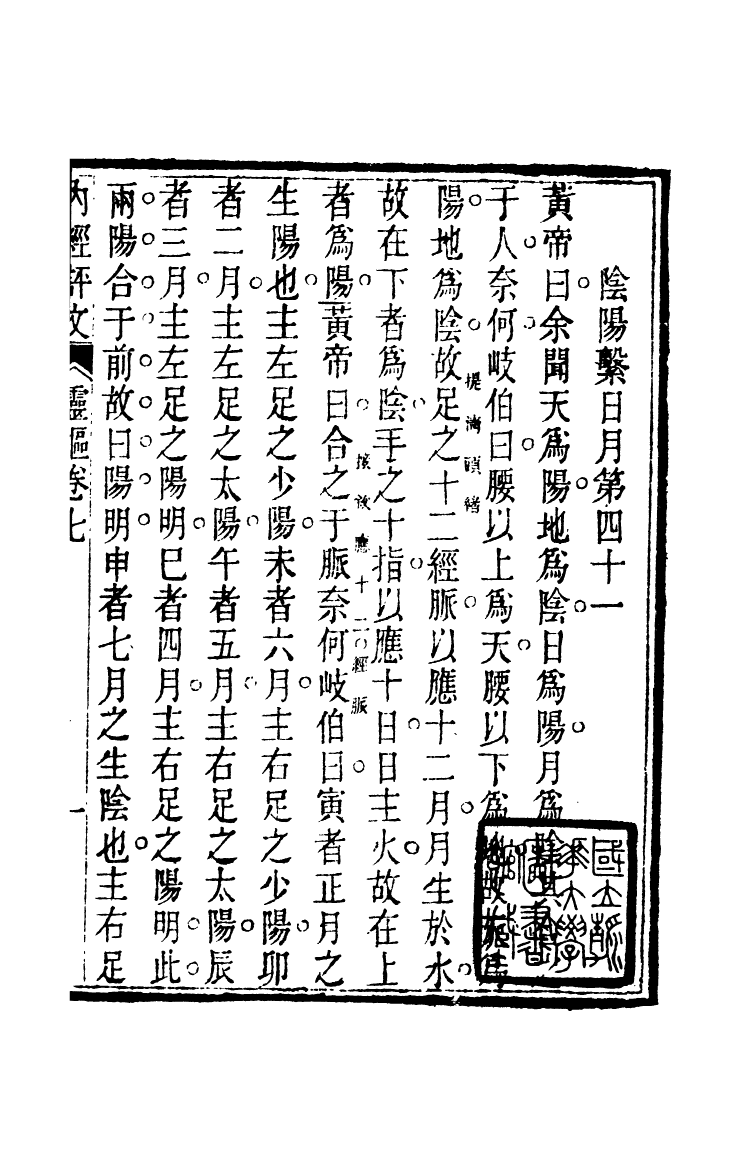 陰陽繫日月第四十一
黃帝曰余聞天爲陽地爲陰日爲陽月爲陰其
于人奈何岐伯曰腰以上爲天腰以下爲地故天爲
提清頭緒
陽地爲陰故足之十二經脈以應十二月月生於水
故在下者爲陰手之十指以應十日日主火故在上
接故應十二經脈
者爲陽黃帝曰合之于脈奈何岐伯曰寅者正月之
生陽也主左足之少陽未者六月主右足之少陽卯
者二月主左足之太陽午者五月主右足之太陽辰
者三月主左足之陽明巳者四月主右足之陽明此
兩陽合于前故曰陽明申者七月之生陰也主右足
內經評文 靈樞卷七 一